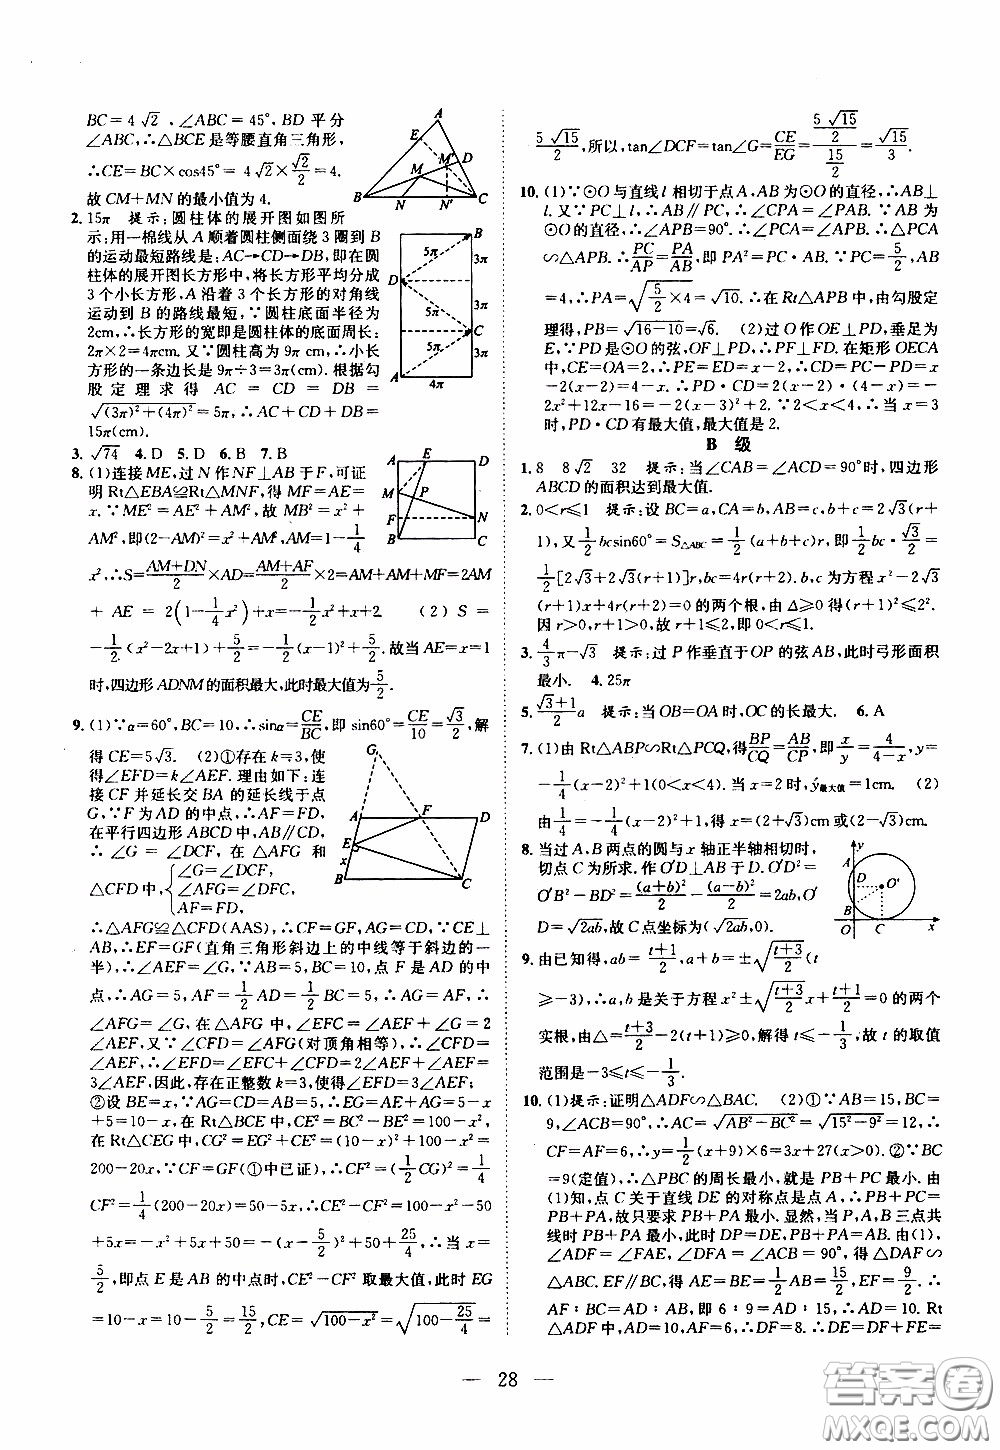 BC=4√2,∠ABC=45°,BD平分
∠ABC,∴△BCE是等腰直角三角形,
∴CE=BC×cos45°=4√2×√2/2=4.
故CM+MN的最小值为4.
A
E
M' D
M
B N N' C
2. 15π 提示:圆柱体的展开图如图所
示:用一棉线从A顺着圆柱侧面绕3圈到B
的运动最短路线是:AC→CD→DB,即在圆
柱体的展开图长方形中,将长方形平均分成
3个小长方形,A沿着3个长方形的对角线
运动到B的路线最短.∵圆柱底面半径为
2cm,∴长方形的宽即是圆柱体的底面周长:
2π×2=4πcm.又∵圆柱高为9πcm,∴小长
方形的一条边长是9π÷3=3π(cm).根据勾
股定理求得AC=CD=DB=
√((3π)²+(4π)²)=5π,∴AC+CD+DB=
15π(cm).
B
5π 3π
D
5π 3π
C
5π 3π
A 4π
3. √74 4. D 5. D 6. B 7. B
8. (1)连接ME,过N作NF⊥AB于F,可证
明Rt△EBA≌Rt△MNF,得MF=AE=
x.∵ME²=AE²+AM²,故MB²=x²+
AM²,即(2-AM)²=x²+AM²,AM=1-1/4
x²,∴S=(AM+DN)/2×AD=(AM+AF)/2×2=AM+AM+MF=2AM
+AE=2(1-1/4x²)+x=-1/2x²+x+2. (2)S=
-1/2.(x²-2x+1)+5/2=-1/2(x-1)²+5/2.故当AE=x=1
时,四边形ADNM的面积最大,此时最大值为5/2.
A E D
M P
F N
B C
9. (1)∵α=60°,BC=10,∴sinα=CE/BC,即sin60°=CE/10=√3/2,解
得CE=5√3. (2)①存在k=3,使
得∠EFD=k∠AEF.理由如下:连
接CF并延长交BA的延长线于点
G,∵F为AD的中点,∴AF=FD,
在平行四边形ABCD中,AB∥CD,
∴∠G=∠DCF,在△AFG和
△CFD中,{∠G=∠DCF,
∠AFG=∠DFC,
AF=FD,
G
A F D
E
x
B C
∴△AFG≌△CFD(AAS),∴CF=GF,AG=CD,∵CE⊥
AB,∴EF=GF(直角三角形斜边上的中线等于斜边的一
半),∴∠AEF=∠G,∵AB=5,BC=10,点F是AD的中
点,∴AG=5,AF=1/2AD=1/2BC=5,∴AG=AF,∴
∠AFG=∠G,在△AFG中,∠EFC=∠AEF+∠G=2
∠AEF,又∵∠CFD=∠AFG(对顶角相等),∴∠CFD=
∠AEF,∴∠EFD=∠EFC+∠CFD=2∠AEF+∠AEF=
3∠AEF,因此,存在正整数k=3,使得∠EFD=3∠AEF;
②设BE=x,∵AG=CD=AB=5,∴EG=AE+AG=5-x
+5=10-x,在Rt△BCE中,CE²=BC²-BE²=100-x²,
在Rt△CEG中,CG²=EG²+CE²=(10-x)²+100-x²=
200-20x,∵CF=GF(①中已证),∴CF²=(1/2CG)²=1/4
CF²=1/4(200-20x)=50-5x,∴CE²-CF²=100-x²-50
+5x=-x²+5x+50=-(x-5/2)²+50+25/4,∴当x=
5/2,即点E是AB的中点时,CE²-CF²取最大值,此时EG
=10-x=10-5/2=15/2,CE=√(100-x²)=√(100-25/4)=
5√15/2,所以,tan∠DCF=tan∠G=CE/EG=(5√15/2)/(15/2)=√15/3.
10. (1)∵⊙O与直线l相切于点A,AB为⊙O的直径,∴AB⊥
l.又∵PC⊥l,∴AB∥PC,∴∠CPA=∠PAB.∵AB为
⊙O的直径,∴∠APB=90°.∴∠PCA=∠APB.∴△PCA
∽△APB.∴PC/AP=PA/AB,即PA²=PC·AB.∵PC=5/2,AB
=4,∴PA=√(5/2×4)=√10.∴在Rt△APB中,由勾股定
理得,PB=√(16-10)=√6. (2)过O作OE⊥PD,垂足为
E,∵PD是⊙O的弦,OF⊥PD,∴PF⊥FD.在矩形OECA
中,CE=OA=2,∴PE=ED=x-2,∴CD=PC-PD=x
-2(x-2)=4-x.∴PD·CD=2(x-2)·(4-x)=-
2x²+12x-16=-2(x-3)²+2.∵2<x<4,∴当x=3
时,PD·CD有最大值,最大值是2.
B 级
1. 8 8√2 32 提示:当∠CAB=∠ACD=90°时,四边形
ABCD的面积达到最大值.
2. 0<r≤1 提示:设BC=a,CA=b,AB=c,b+c=2√3(r+
1),又1/2bcsin60°=S△ABC=1/2(a+b+c)r,即1/2bc·√3/2=
1/2[2√3+2√3(r+1)]r,bc=4r(r+2),b,c为方程x²-2√3
(r+1)x+4r(r+2)=0的两个根,由Δ≥0得(r+1)²≤2².
因r>0,r+1>0,故r+1≤2,即0<r≤1.
3. 4/3π-√3 提示:过P作垂直于OP的弦AB,此弓形面积
最小. 4. 25π
5. (√3+1)/2a 提示:当OB=OA时,OC的长最大. 6. A
7. (1)由Rt△ABP∽Rt△PCQ,得BP/CQ=AB/CP,即x/y=4/(4-x),y=
-1/4(x-2)²+1(0<x<4).当x=2时,y最大值=1cm. (2)
由1/4=-1/4(x-2)²+1,得x=(2+√3)cm或(2-√3)cm.
8. 当过A,B两点的圆与x轴正半轴相切时,
切点C为所求.作O'D⊥AB于D.O'D²=
O'B²-BD²=(a+b)²/2-(a-b)²/2=2ab,O'
D=√2ab,故C点坐标为(√2ab,0).
y
A
D O'
B
O C x
9. 由已知得,ab=(t+1)/2,a+b=±√((t+3)/2)(t
≥-3),∴a,b是关于方程x²±√((t+3)/2)x+(t+1)/2=0的两个
实根,由△=(t+3)/2-2(t+1)≥0,解得t≤-1/3,故t的取值
范围是-3≤t≤-1/3.
10. (1)提示:证明△ADF∽△BAC. (2)①∵AB=15,BC=
9,∠ACB=90°,∴AC=√(AB²-BC²)=√(15²-9²)=12,∴
CF=AF=6,∴y=1/2(x+9)×6=3x+27(x>0).②∵BC
=9(定值),∴△PBC的周长最小,就是PB+PC最小.由
(1)知,点C关于直线DE的对称点是点A,∴PB+PC=
PB+PA,故只要求PB+PA最小.显然,当P,A,B三点共
线时PB+PA最小,此时DP=DE,PB+PA=AB.由(1),
∠ADF=∠FAE,∠DFA=∠ACB=90°,得△DAF∽
△ABC.EF∥BC,得AE=BE=1/2AB=15/2,EF=9/2.∴
AF:BC=AD:AB,即6:9=AD:15,∴AD=10.Rt
△ADF中,AD=10,AF=6,∴DF=8.∴DE=DF+FE=
— 28 —
答案圈
MXQE.COM